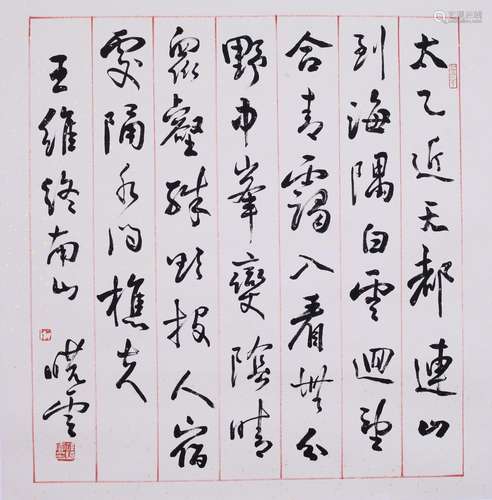 太乙近天都連山
到海隅白雲迴望
合青靄入看無分
野中峯變陰晴
眾壑殊欲投人宿
處隔水問樵夫
王維終南山 曉雲